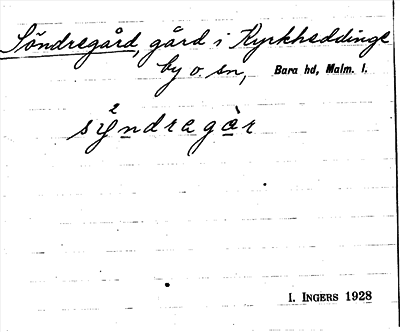 Söndregård, gård i Kyrkheddinge
by o. sn, Bara hd, Malm. l.
sy²ndragàr
I. INGERS 1928